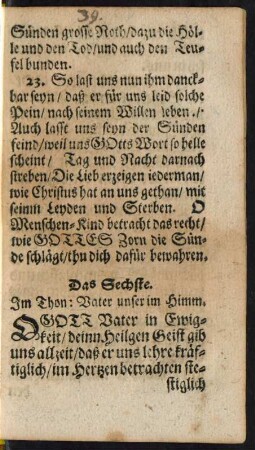 39.
Sünden grosse Noth/dazu die Höl-
le und den Tod/und auch den Teu-
fel bunden.
23. So last uns nun ihm danck-
bar seyn/ daß er für uns leid solche
Pein/ nach seinem Willen leben./
Auch lasse uns seyn der Sünden
feind/weil uns GOtts Wort so helle
scheint/ Tag und Nacht darnach
streben/Die Lieb erzeigen iederman/
wie Christus hat an uns gethan/ mit
seinm Leyden und Sterben. O
Menschen-Kind betracht das recht/
wie GOTTES Zorn die Sün-
de schlägt/thu dich dafür bewahren.
Das Sechste.
Im Thon: Vater unser im Himm.
O GOTT Vater in Ewig-
keit/deinn Heilgen Geist gib
uns allzeit/daß er uns lehre kräf-
tiglich/im Hertzen betrachten ste-
stiglich